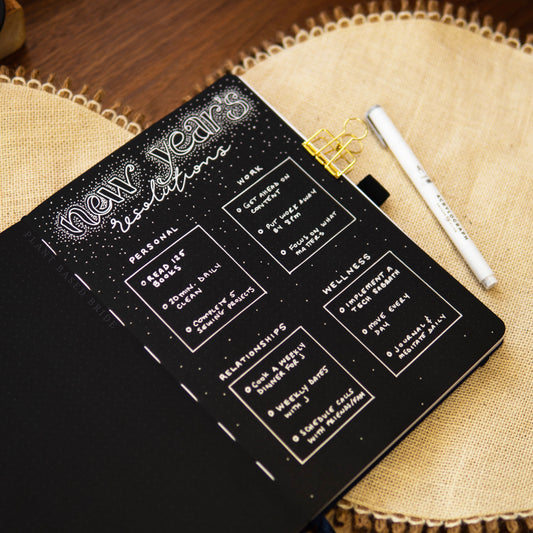 new year's
resolutions
WORK
GET AHEAD ON
CONTENT
PUT WORK AWAY
BY 8PM
FOCUS ON WHAT
MATTERS
PERSONAL
READ 125
BOOKS
20MIN. DAILY
CLEAN
COMPLETE 5
SEWING PROJECTS
WELLNESS
IMPLEMENT A
TECH SABBATH
MOVE EVERY
DAY
JOURNAL &
MEDITATE DAILY
RELATIONSHIPS
COOK A WEEKLY
DINNER FOR J
WEEKLY DATES
WITH J
SCHEDULE CALLS
WITH FRIENDS/FAM